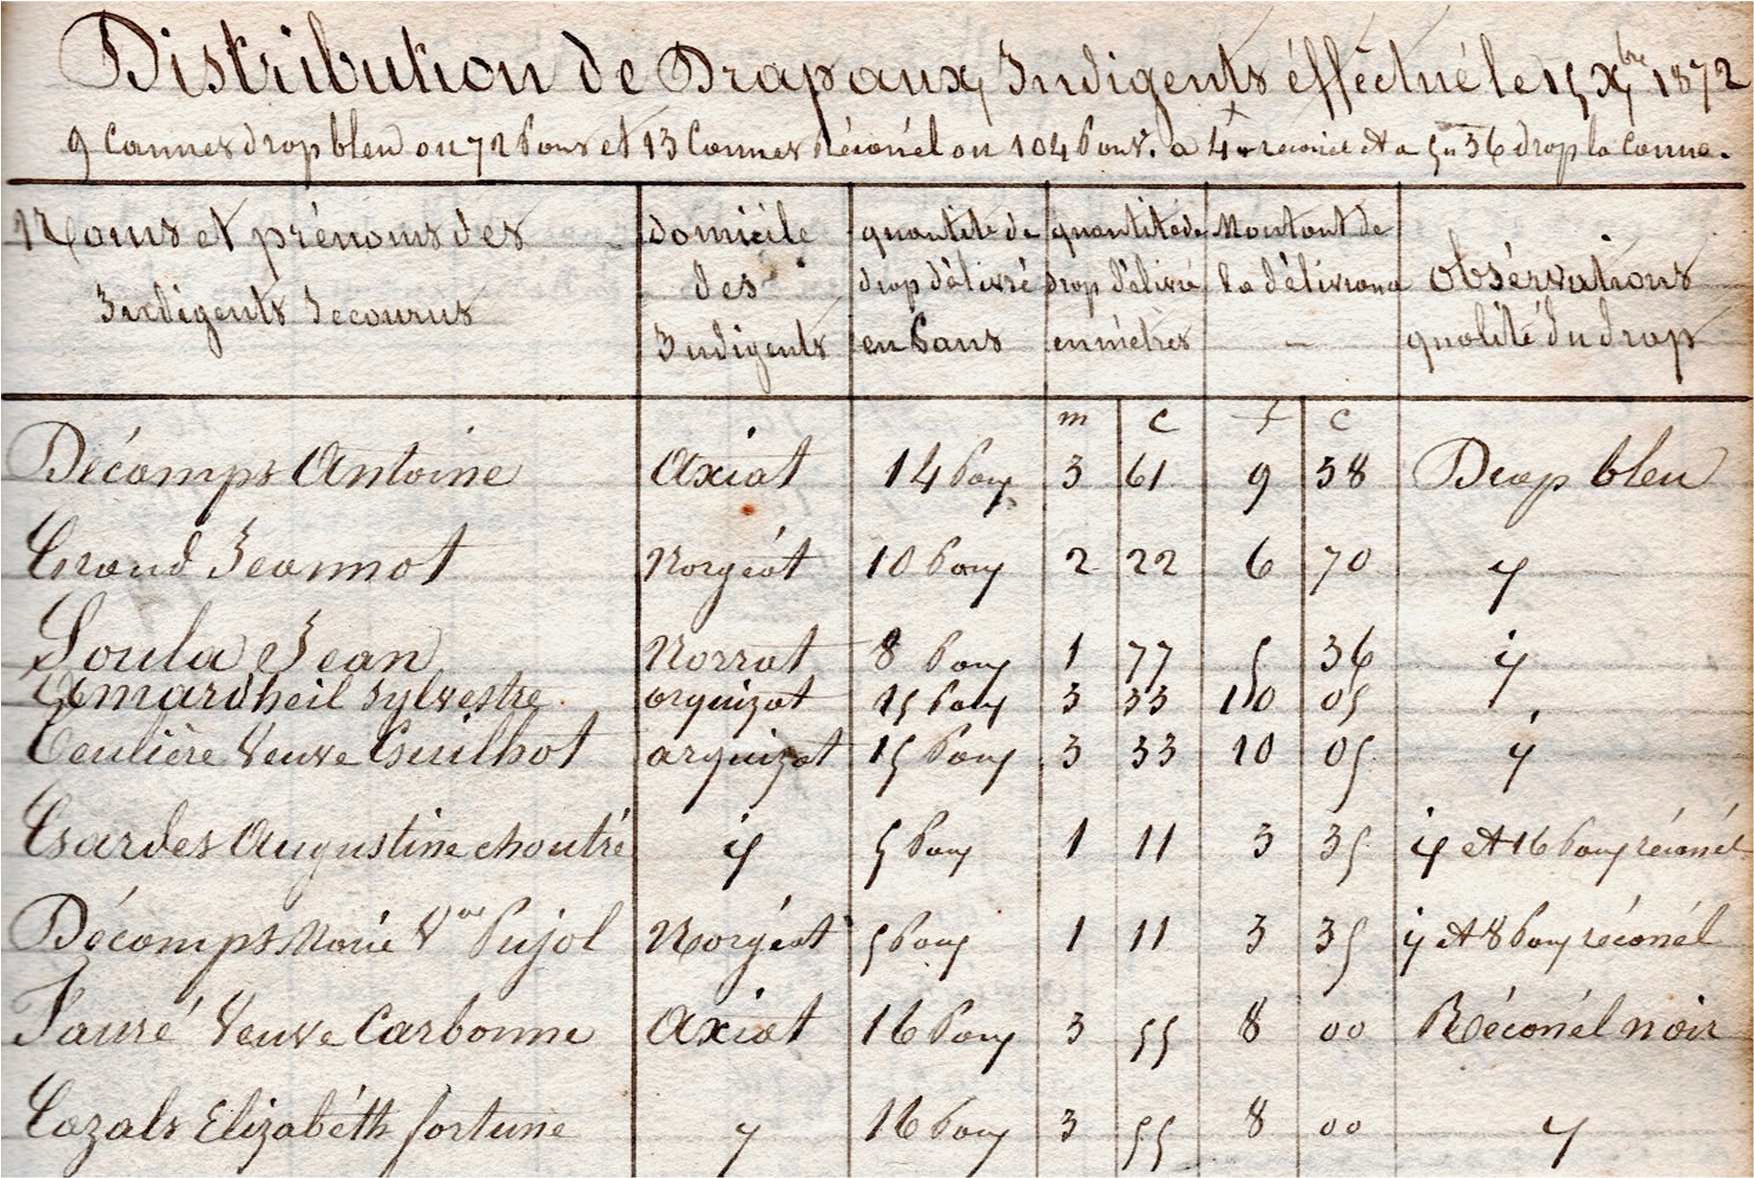 Distribution de Drap aux Indigents éffèctué le 15 Xbre 1872
9 Cannes drap bleu ou 72 Pans et 13 Cannes réconél ou 104 Pans. a 4 réconel et a 5 36 drap la Canne.
Noms et prénoms des
Indigents Secourus
domicile
des
Indigents
quantité de
drap délivré
en Pans
quantité de
drap délivré
en mètres
Montant de
la délivrance
—
Obsérvations
qualité du drap
m c f c
Décamps Antoine Axiat 14 Pans 3 61 9 38 Drap bleu
Grand Jeannot Norgéat 10 Pans 2 22 6 70 "
Soula Jean Norrat 8 Pans 1 77 5 36 "
Amardheil Sylvestre arquizat 15 Pans 3 33 10 05
Teulière Veuve Guilhot arquizat 15 Pans 3 33 10 05 "
Esardes Augustine choutré " 5 Pans 1 11 3 35 " et 16 Pans réconél
Décamps Marie Vve Pujol Norgéat 5 Pans 1 11 3 35 " et 8 Pans réconél
Fauré Veuve Carbonne Axiat 16 Pans 3 55 8 00 Réconél noir
Cazals Elizabéth fortune " 16 Pans 3 55 8 00 "